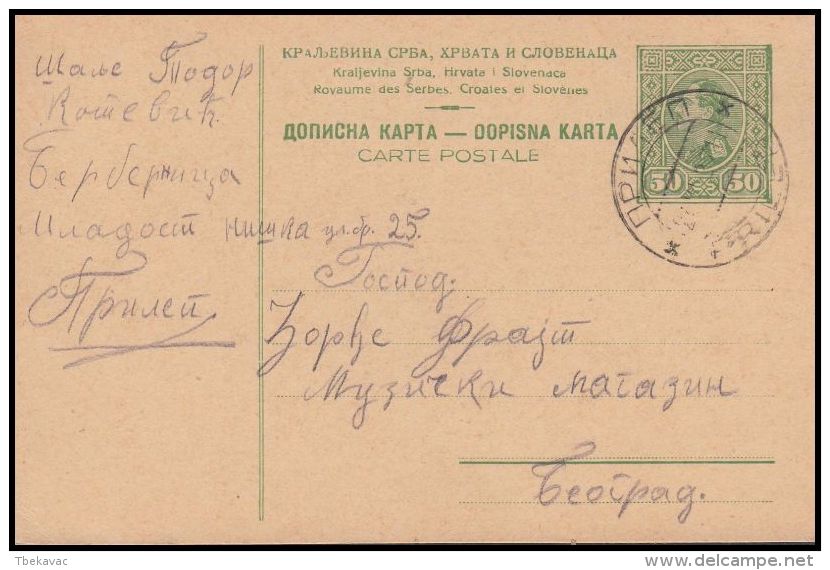 КРАЉЕВИНА СРБА, ХРВАТА И СЛОВЕНАЦА
Kraljevina Srba, Hrvata i Slovenaca
Royaume des Serbes, Croates et Slovènes
ДОПИСНА КАРТА — DOPISNA KARTA
CARTE POSTALE
50 50
ПРИЛЕП
Шаље Тодор
Котевић
Берберница
Младост нишка ул. бр. 25.
Прилеп
Господ.
Ђорђе Фрајт
Музички магазин
Београд.
Tbekavac
delcampe.net